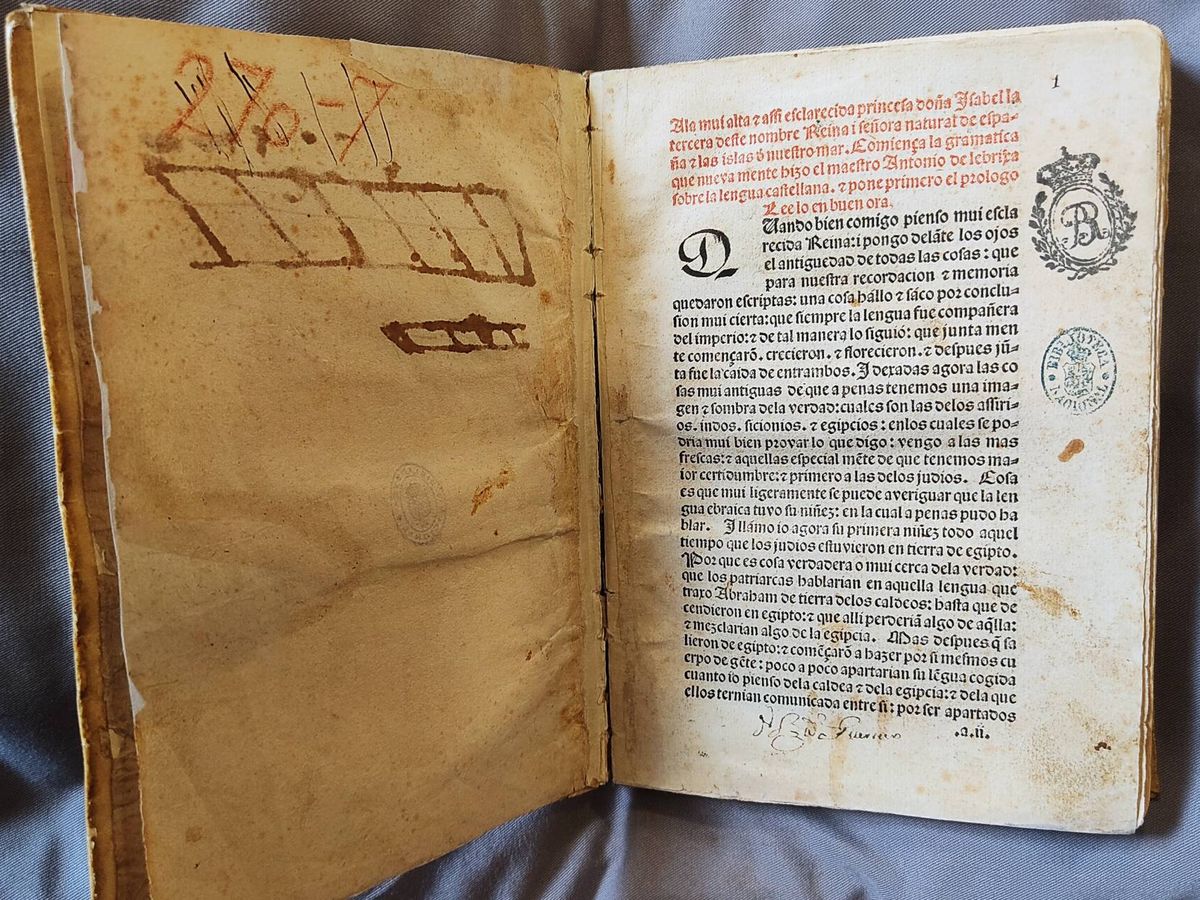 276-7
1
Ala mui alta ⁊ assi esclarecida princesa doña Isabel la
tercera deste nombre Reina i señora natural de espa-
ña ⁊ las islas d̓ nuestro mar. Comiença la gramatica
que nueva mente hizo el maestro Antonio de lebrixa
sobre la lengua castellana. ⁊ pone primero el prologo
Lee lo en buen ora.
QUando bien comigo pienso mui escla
recida Reina: i pongo delãte los ojos
el antiguedad de todas las cosas: que
para nuestra recordacion ⁊ memoria
quedaron escriptas: una cosa hállo ⁊ sáco por conclu-
sion mui cierta: que siempre la lengua fue compañera
del imperio: ⁊ de tal manera lo siguió: que junta men
te começarõ. crecieron. ⁊ florecieron. ⁊ despues jũ-
ta fue la caida de entrambos. I dexadas agora las co
sas mui antiguas de que a penas tenemos una ima-
gen ⁊ sombra dela verdad: cuales son las delos assiri-
os. indos. sicionios. ⁊ egipcios: enlos cuales se po-
dria mui bien provar lo que digo: vengo a las mas
frescas: ⁊ aquellas especial mẽte de que tenemos ma-
ior certidumbre: ⁊ primero a las delos judios. Cosa
es que mui ligeramente se puede averiguar que la len
gua ebraica tuvo su niñez: en la cual a penas pudo ha
blar. I llámo io agora su primera niñez todo aquel
tiempo que los judios estuvieron en tierra de egipto.
Por que es cosa verdadera o mui cerca dela verdad:
que los patriarcas hablarian en aquella lengua que
traxo Abraham de tierra delos caldeos: hasta que de
cendieron en egipto: ⁊ que alli perderiã algo de aq̃lla:
⁊ mezclarian algo de la egipcia. Mas despues q̃ sa
lieron de egipto: ⁊ començarõ a hazer por si mesmos cu
erpo de gẽte: poco a poco apartarian su lẽgua cogida
cuanto io pienso dela caldea ⁊ dela egipcia: ⁊ dela que
ellos ternian comunicada entre si: por ser apartados
.a.ii.
BIBLIOTECA NACIONAL